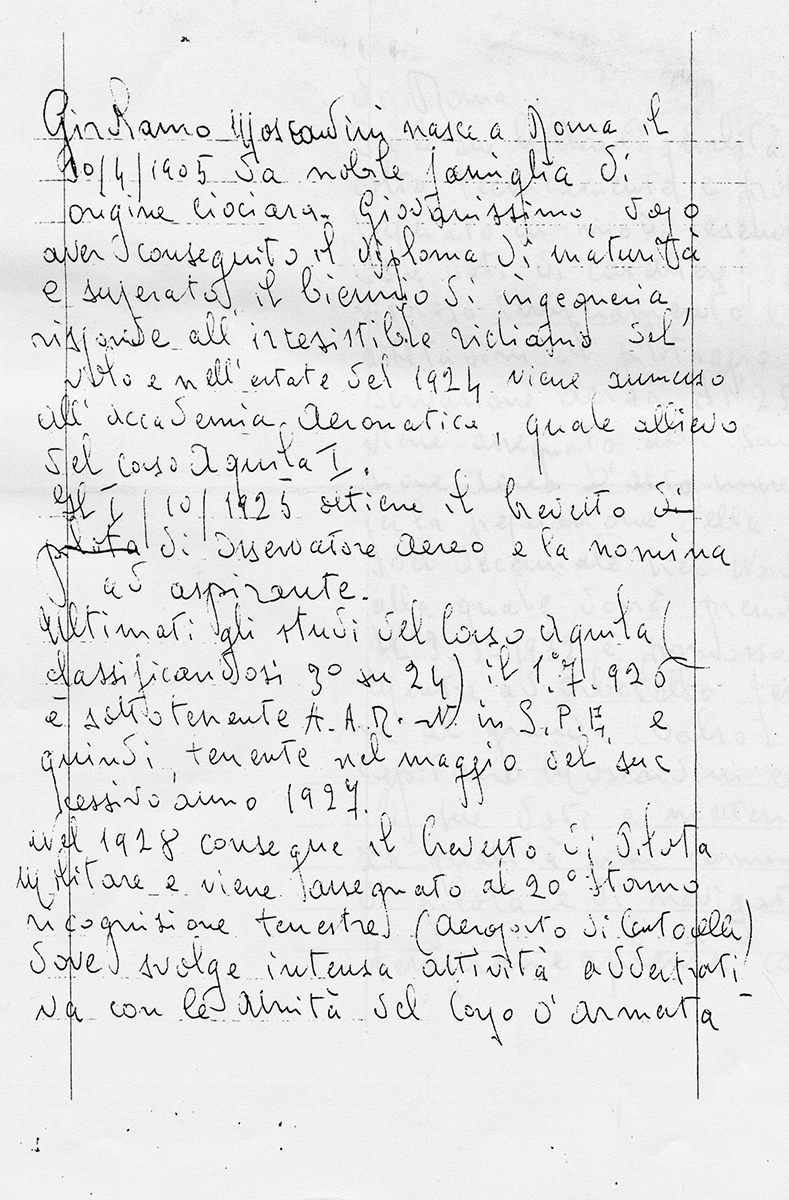 Girolamo Moscardini nasce a Roma il
30/4/1905 da nobile famiglia di
origine ciociara. Giovanissimo, dopo
aver conseguito il diploma di maturità
e superato il biennio di ingegneria,
risponde all'irresistibile richiamo del
volo e nell'estate del 1924 viene ammesso
all'Accademia Aeronautica, quale allievo
del corso Aquila I.
Il I/10/1925 ottiene il brevetto di
pilota di Osservatore Aereo e la nomina
ad aspirante.
Ultimati gli studi del Corso Aquila (
classificandosi 3° su 24) il 1.7.926
è sottotenente A.A.R.N. in S.P.E. e
quindi, tenente nel maggio del suc
cessivo anno 1927.
Nel 1928 consegue il brevetto di Pilota
Militare e viene assegnato al 20° Stormo
ricognizione terrestre (Aeroporto di Centocelle)
dove svolge intensa attività addestrati
va con le Unità del Corpo d'Armata